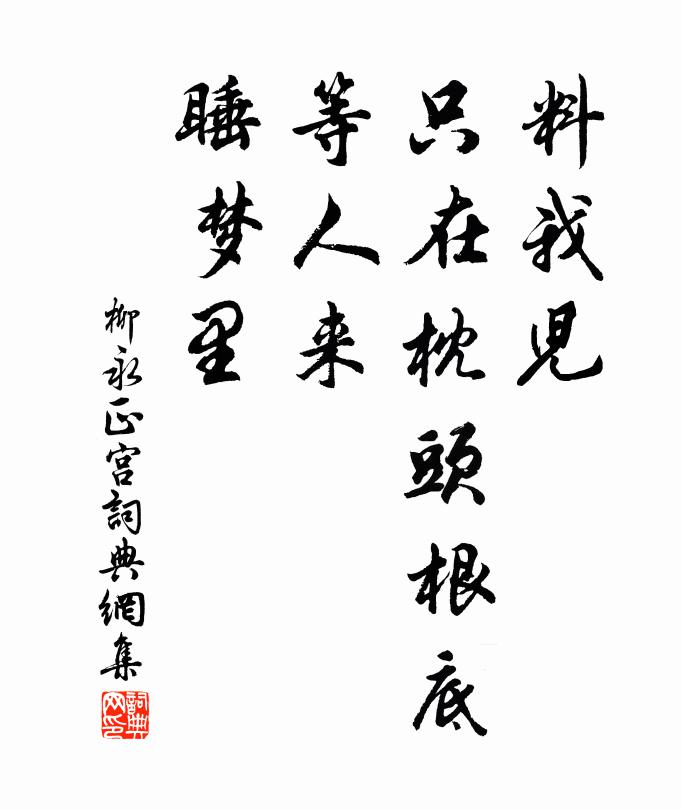 料我兒
只在枕頭根底
等人来
睡梦里
柳永正宫詞典網集
詞典網印